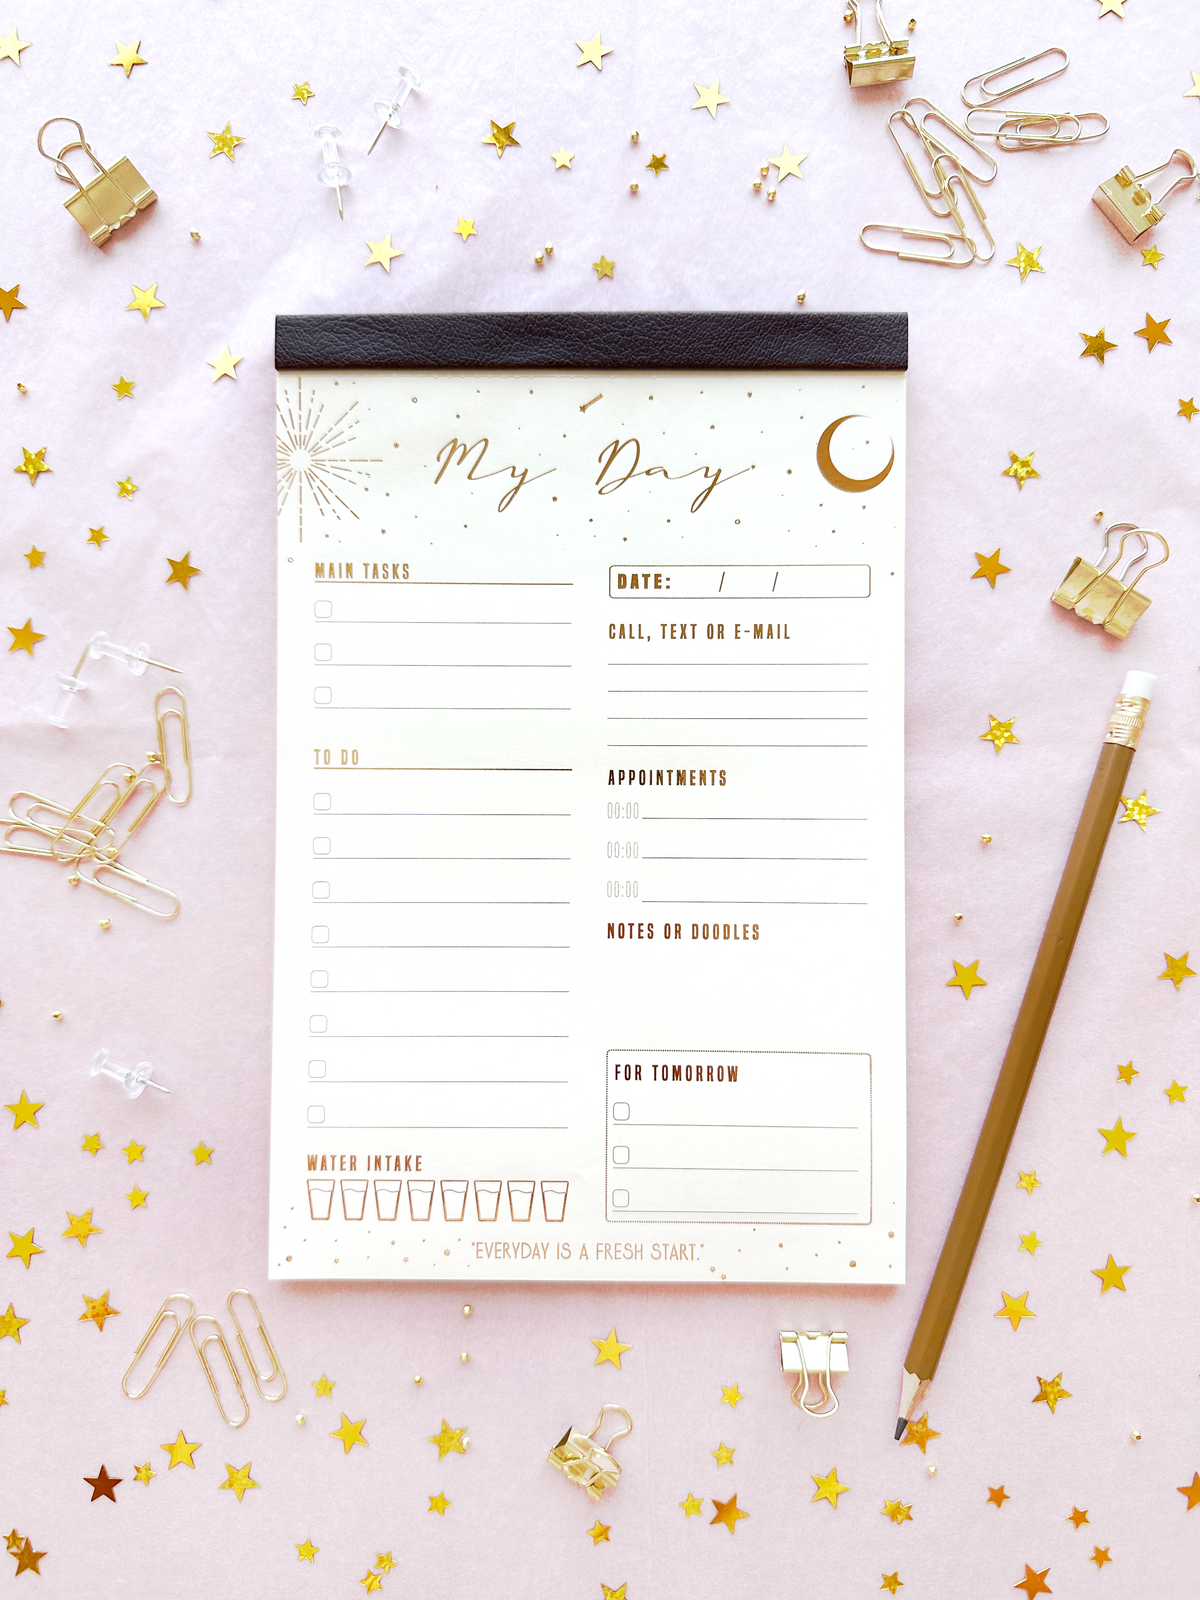 My Day
MAIN TASKS
TO DO
WATER INTAKE
DATE: / /
CALL, TEXT OR E-MAIL
APPOINTMENTS
00:00
00:00
00:00
NOTES OR DOODLES
FOR TOMORROW
"EVERYDAY IS A FRESH START."